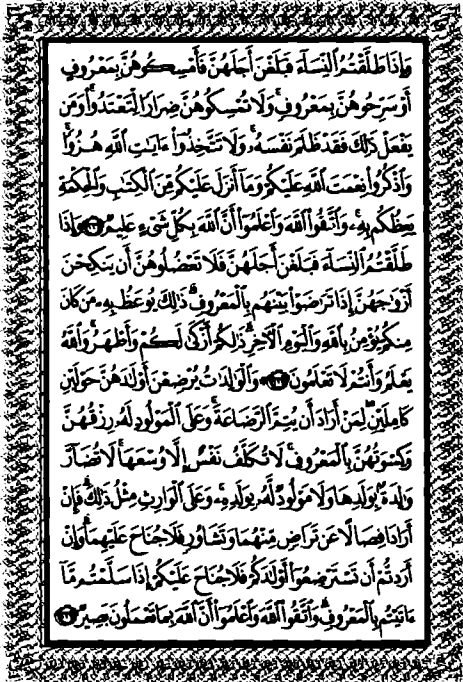 وَإِذَا طَلَّقْتُمُ ٱلنِّسَآءَ فَبَلَغْنَ أَجَلَهُنَّ فَأَمْسِكُوهُنَّ بِمَعْرُوفٍ
أَوْ سَرِّحُوهُنَّ بِمَعْرُوفٍ ۚ وَلَا تُمْسِكُوهُنَّ ضِرَارًا لِّتَعْتَدُوا۟ ۚ وَمَن
يَفْعَلْ ذَٰلِكَ فَقَدْ ظَلَمَ نَفْسَهُۥ ۚ وَلَا تَتَّخِذُوٓا۟ ءَايَٰتِ ٱللَّهِ هُزُوًا ۚ
وَٱذْكُرُوا۟ نِعْمَتَ ٱللَّهِ عَلَيْكُمْ وَمَآ أَنزَلَ عَلَيْكُم مِّنَ ٱلْكِتَٰبِ وَٱلْحِكْمَةِ
يَعِظُكُم بِهِۦ ۚ وَٱتَّقُوا۟ ٱللَّهَ وَٱعْلَمُوٓا۟ أَنَّ ٱللَّهَ بِكُلِّ شَىْءٍ عَلِيمٌ ۝٢٣١ وَإِذَا
طَلَّقْتُمُ ٱلنِّسَآءَ فَبَلَغْنَ أَجَلَهُنَّ فَلَا تَعْضُلُوهُنَّ أَن يَنكِحْنَ
أَزْوَٰجَهُنَّ إِذَا تَرَٰضَوْا۟ بَيْنَهُم بِٱلْمَعْرُوفِ ۗ ذَٰلِكَ يُوعَظُ بِهِۦ مَن كَانَ
مِنكُمْ يُؤْمِنُ بِٱللَّهِ وَٱلْيَوْمِ ٱلْءَاخِرِ ۗ ذَٰلِكُمْ أَزْكَىٰ لَكُمْ وَأَطْهَرُ ۗ وَٱللَّهُ
يَعْلَمُ وَأَنتُمْ لَا تَعْلَمُونَ ۝٢٣٢ وَٱلْوَٰلِدَٰتُ يُرْضِعْنَ أَوْلَٰدَهُنَّ حَوْلَيْنِ
كَامِلَيْنِ ۖ لِمَنْ أَرَادَ أَن يُتِمَّ ٱلرَّضَاعَةَ ۚ وَعَلَى ٱلْمَوْلُودِ لَهُۥ رِزْقُهُنَّ
وَكِسْوَتُهُنَّ بِٱلْمَعْرُوفِ ۚ لَا تُكَلَّفُ نَفْسٌ إِلَّا وُسْعَهَا ۚ لَا تُضَآرَّ
وَٰلِدَةٌۢ بِوَلَدِهَا وَلَا مَوْلُودٌ لَّهُۥ بِوَلَدِهِۦ ۚ وَعَلَى ٱلْوَارِثِ مِثْلُ ذَٰلِكَ ۗ فَإِنْ
أَرَادَا فِصَالًا عَن تَرَاضٍ مِّنْهُمَا وَتَشَاوُرٍ فَلَا جُنَاحَ عَلَيْهِمَا ۗ وَإِنْ
أَرَدتُّمْ أَن تَسْتَرْضِعُوٓا۟ أَوْلَٰدَكُمْ فَلَا جُنَاحَ عَلَيْكُمْ إِذَا سَلَّمْتُم مَّآ
ءَاتَيْتُم بِٱلْمَعْرُوفِ ۗ وَٱتَّقُوا۟ ٱللَّهَ وَٱعْلَمُوٓا۟ أَنَّ ٱللَّهَ بِمَا تَعْمَلُونَ بَصِيرٌ ۝٢٣٣